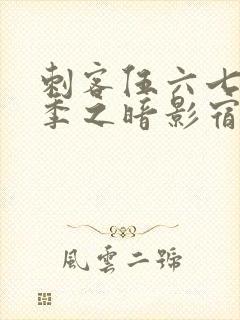 刺客伍六七
季之暗影宿
風雲二號